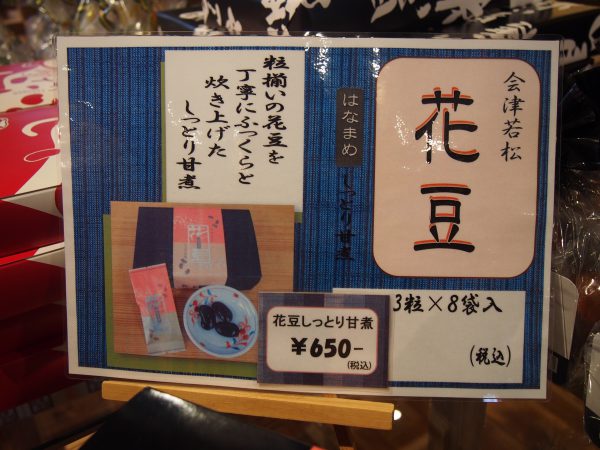 会津若松
花豆
はなまめ
しっとり甘煮
粒揃いの花豆を
丁寧にふっくらと
炊き上げた
しっとり甘煮
3粒×8袋入
(税込)
花豆しっとり甘煮
¥650-
(税込)